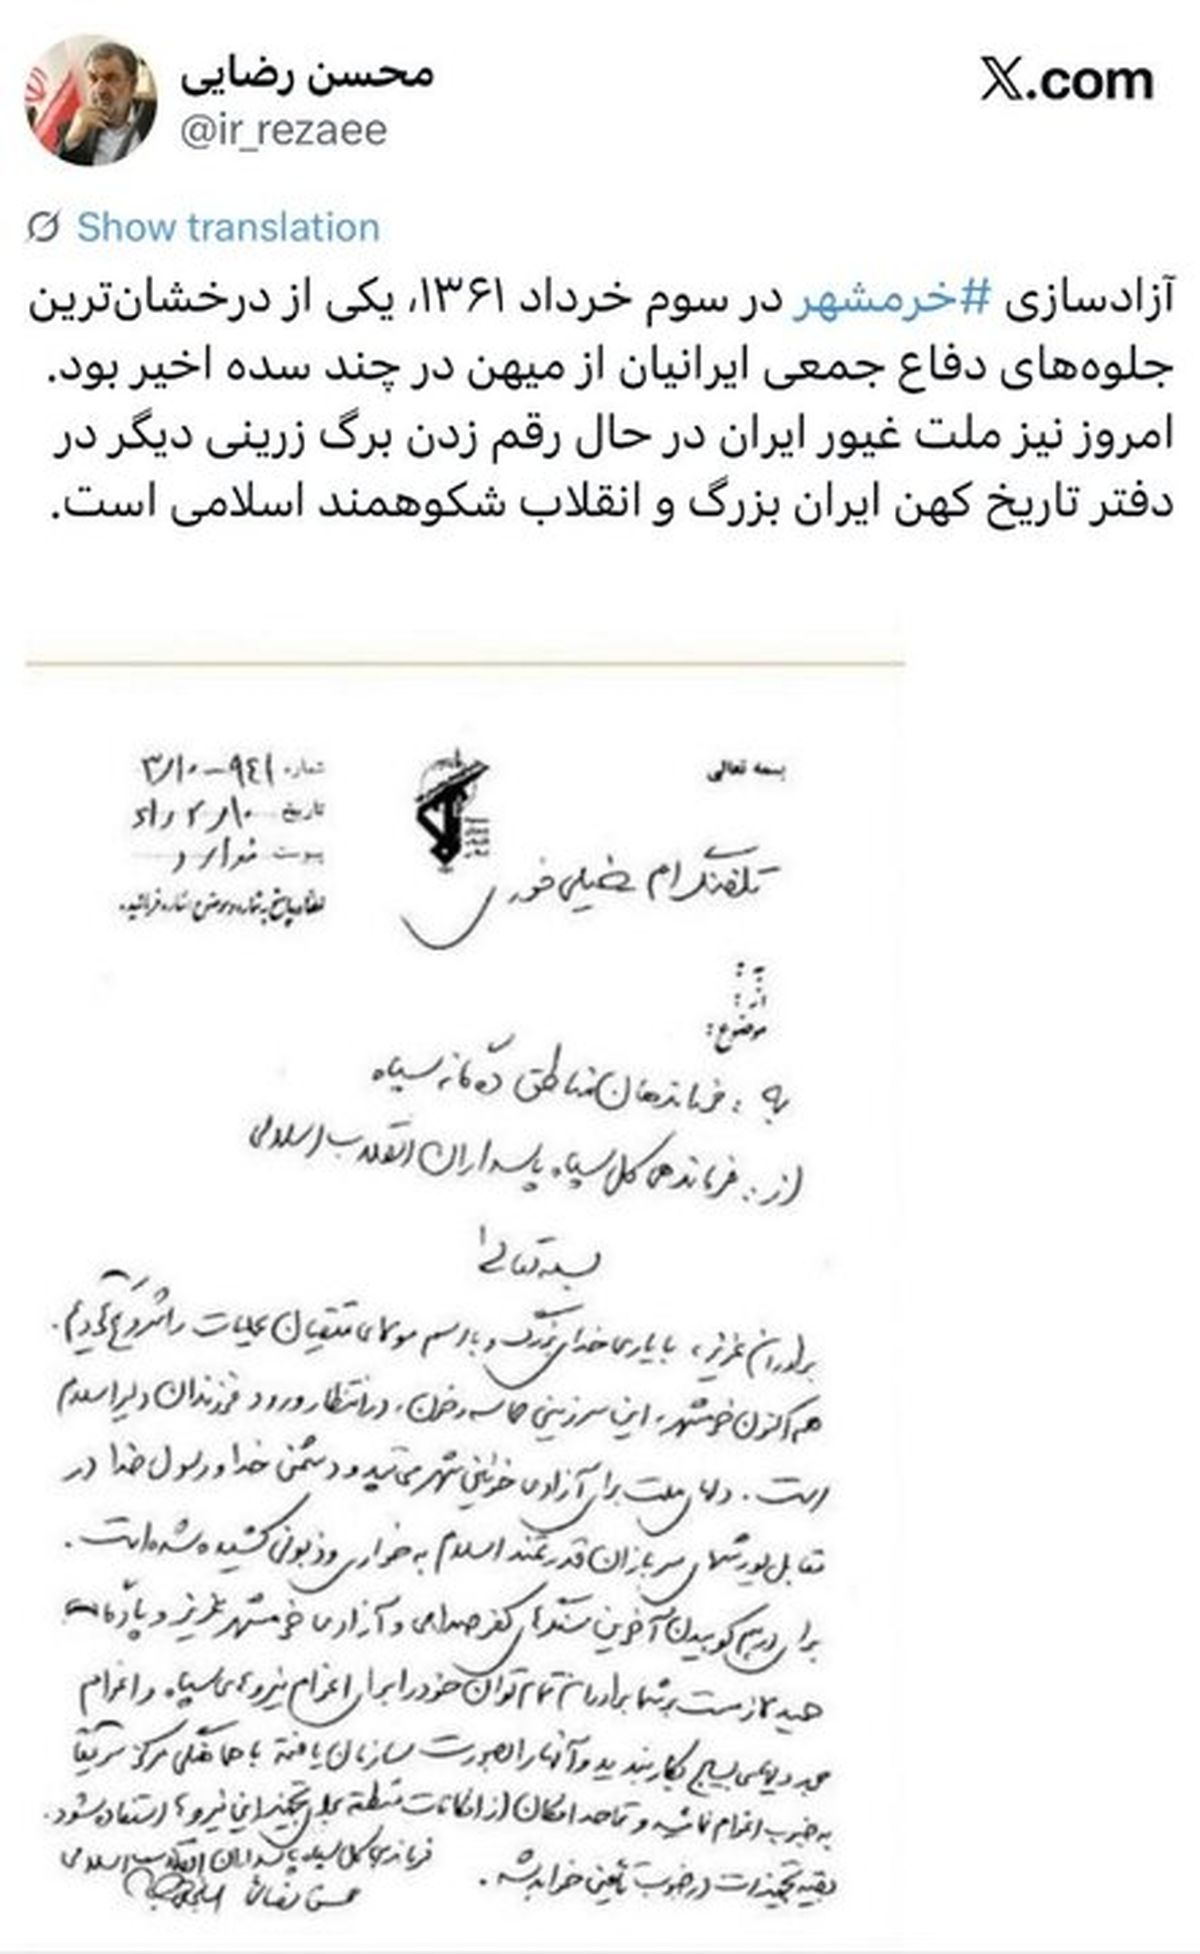 محسن رضایی
@ir_rezaee
X.com
Show translation
آزادسازی #خرمشهر در سوم خرداد ۱۳۶۱، یکی از درخشان‌ترین
جلوه‌های دفاع جمعی ایرانیان از میهن در چند سده اخیر بود.
امروز نیز ملت غیور ایران در حال رقم زدن برگ زرینی دیگر در
دفتر تاریخ کهن ایران بزرگ و انقلاب شکوهمند اسلامی است.
بسمه تعالی
شماره
تاریخ
پیوست ندارد
لطفا در پاسخ به شماره و موضوع اشاره فرمائید.
تلفنگرام خیلی فوری
به:
از:
موضوع:
به: فرماندهان مناطق ده گانه سپاه
از: فرماندهی کل سپاه پاسداران انقلاب اسلامی
بسمه تعالی
برادران عزیز، با یاری خدای بزرگ و با اسم مولای متقیان عملیات را شروع کردیم.
هم اکنون خرمشهر، این سرزمین حماسه و خون، در انتظار ورود فرزندان دلیر اسلام
است. دلهای ملت برای آزادی خونین شهر می‌تپد و دشمن خدا و رسول خدا در
مقابل یورشهای سربازان قدرتمند اسلام به خواری و ذبونی کشیده شده است.
برای درهم کوبیدن آخرین سنگرهای کفر صدامی و آزادی خرمشهر عزیز و پادگان
حمید لازمست شما برادران تمام توان خود را برای اعزام نیروهای سپاه و اعزام
مجدد بسیج بکار بندید و آنها را بصورت سازمان یافته با هماهنگی مرکز سریعاً
به جنوب اعزام نمائید و تا حد امکان از امکانات منطقه برای تجهیز این نیروها استفاده شود.
بقیه تجهیزات در جنوب تأمین خواهد شد.
فرمانده کل سپاه پاسداران انقلاب اسلامی
محسن رضائی